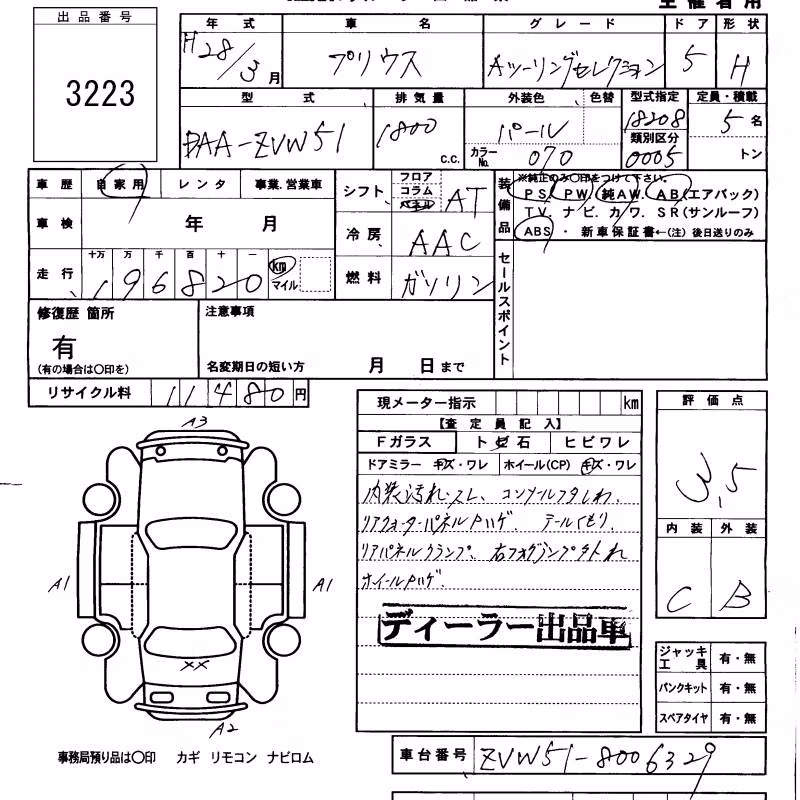 主催者用
出品番号
3223
年式 車名 グレード ドア 形状
H28/3月 プリウス Aツーリングセレクション 5 H
型式 排気量 外装色 色替 型式指定 定員・積載
DAA-ZVW51 1800 c.c. パール 18208 5名
カラーNo. 070 類別区分 0005 トン
車歴 自家用 レンタ 事業.営業車
車検 年 月
走行 十万 万 千 百 十 一
196820 km マイル
シフト フロア コラム パネル AT
冷房 AAC
燃料 ガソリン
装備品 ※純正のみ〇印をつけて下さい。
PS. PW. 純AW. AB(エアバック)
TV. ナビ. カワ. SR(サンルーフ)
ABS ・ 新車保証書←(注) 後日送りのみ
セールスポイント
修復歴 箇所
有
(有の場合は〇印を)
注意事項
名変期日の短い方 月 日まで
リサイクル料 11480円
現メーター指示 km
【査定員記入】
Fガラス トビ石 ヒビワレ
ドアミラー キズ・ワレ ホイール(CP) キズ・ワレ
内装汚れ・スレ、コンソールフタしわ、
リアクォーターパネルPハゲ、テールくもり、
リアパネルクランプ、右フォグランプ外れ
ホイールPハゲ、
ディーラー出品車
評価点
3.5
内装 外装
C B
A3
A1 A1
XX
A2
ジャッキ工具 有・無
パンクキット 有・無
スペアタイヤ 有・無
事務局預り品は〇印 カギ リモコン ナビロム
車台番号 ZVW51-8006329